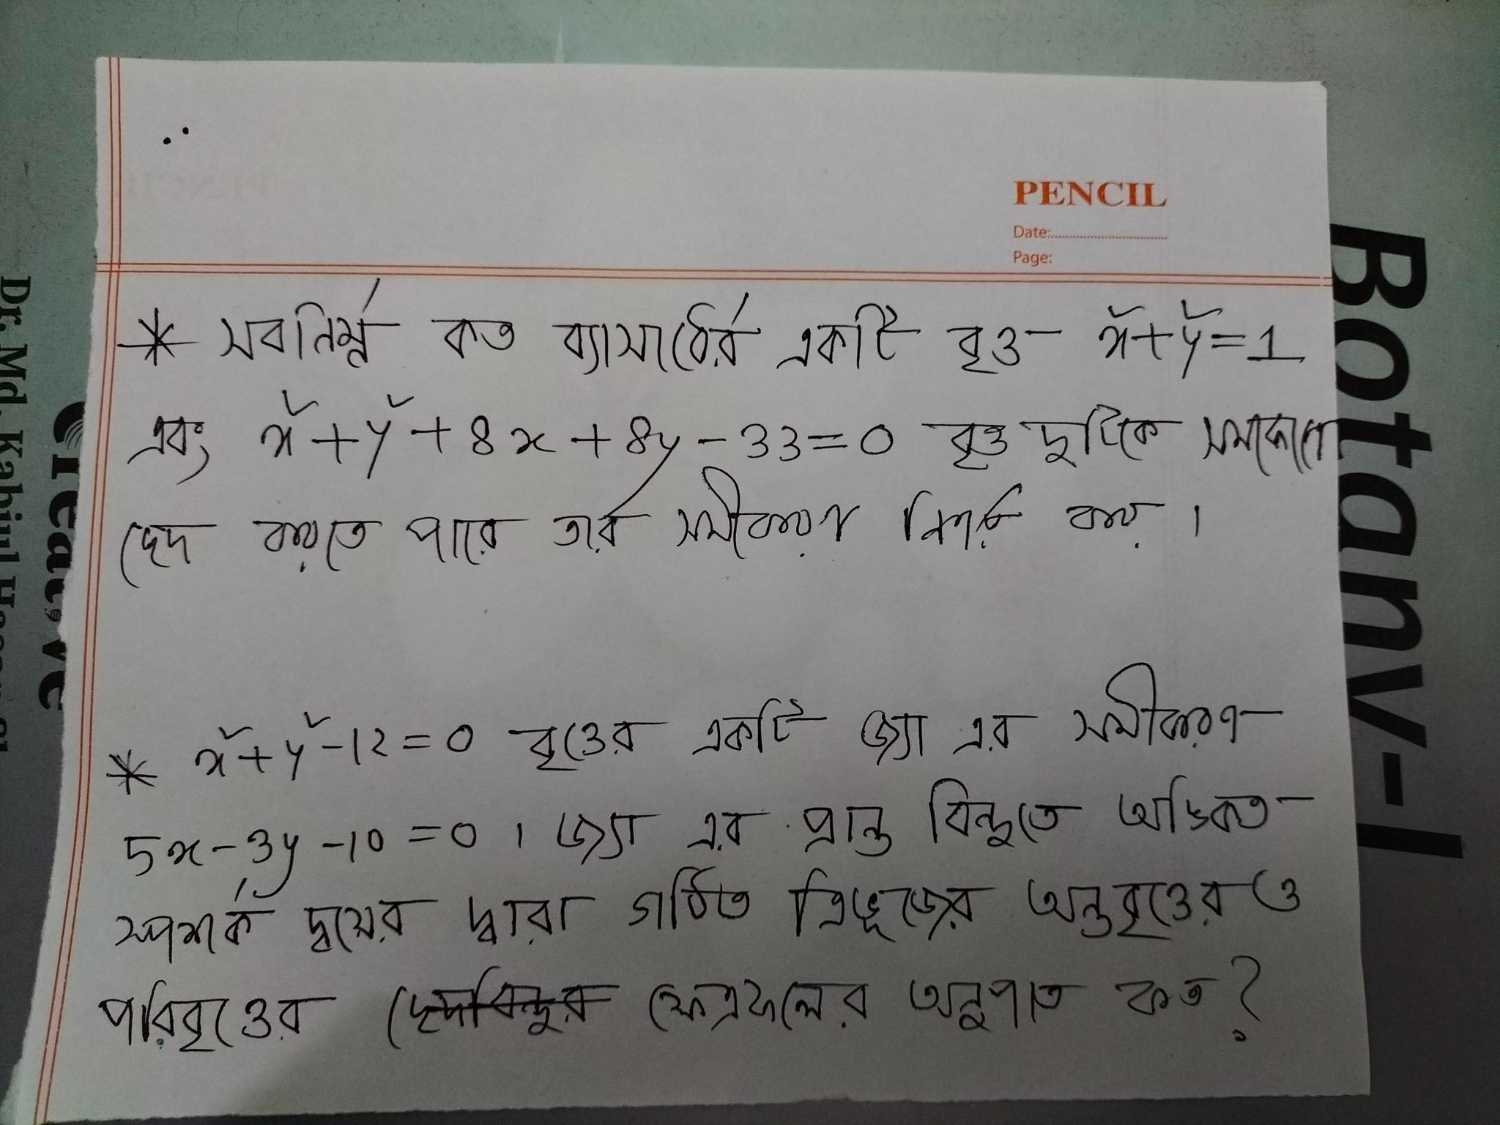 PENCIL
Date:
Page:
* সবনির্ম্ন কত ব্যাসার্ধের একটি বৃত্ত x²+y²=1
এবং x²+y²+8x+8y-33=0 বৃত্ত দুটিকে সমকোণে
ছেদ করতে পারে তার সমীকরণ নির্ণয় কর।
* x²+y²-12=0 বৃত্তের একটি জ্যা এর সমীকরণ
5x-3y-10=0। জ্যা এর প্রান্ত বিন্দুতে অঙ্কিত
স্পর্শক দ্বয়ের দ্বারা গঠিত ত্রিভূজের অন্তবৃত্তের ও
পরিবৃত্তের ক্ষেত্রফলের অনুপাত কত?
Botany-I
Creative
Dr. Md.